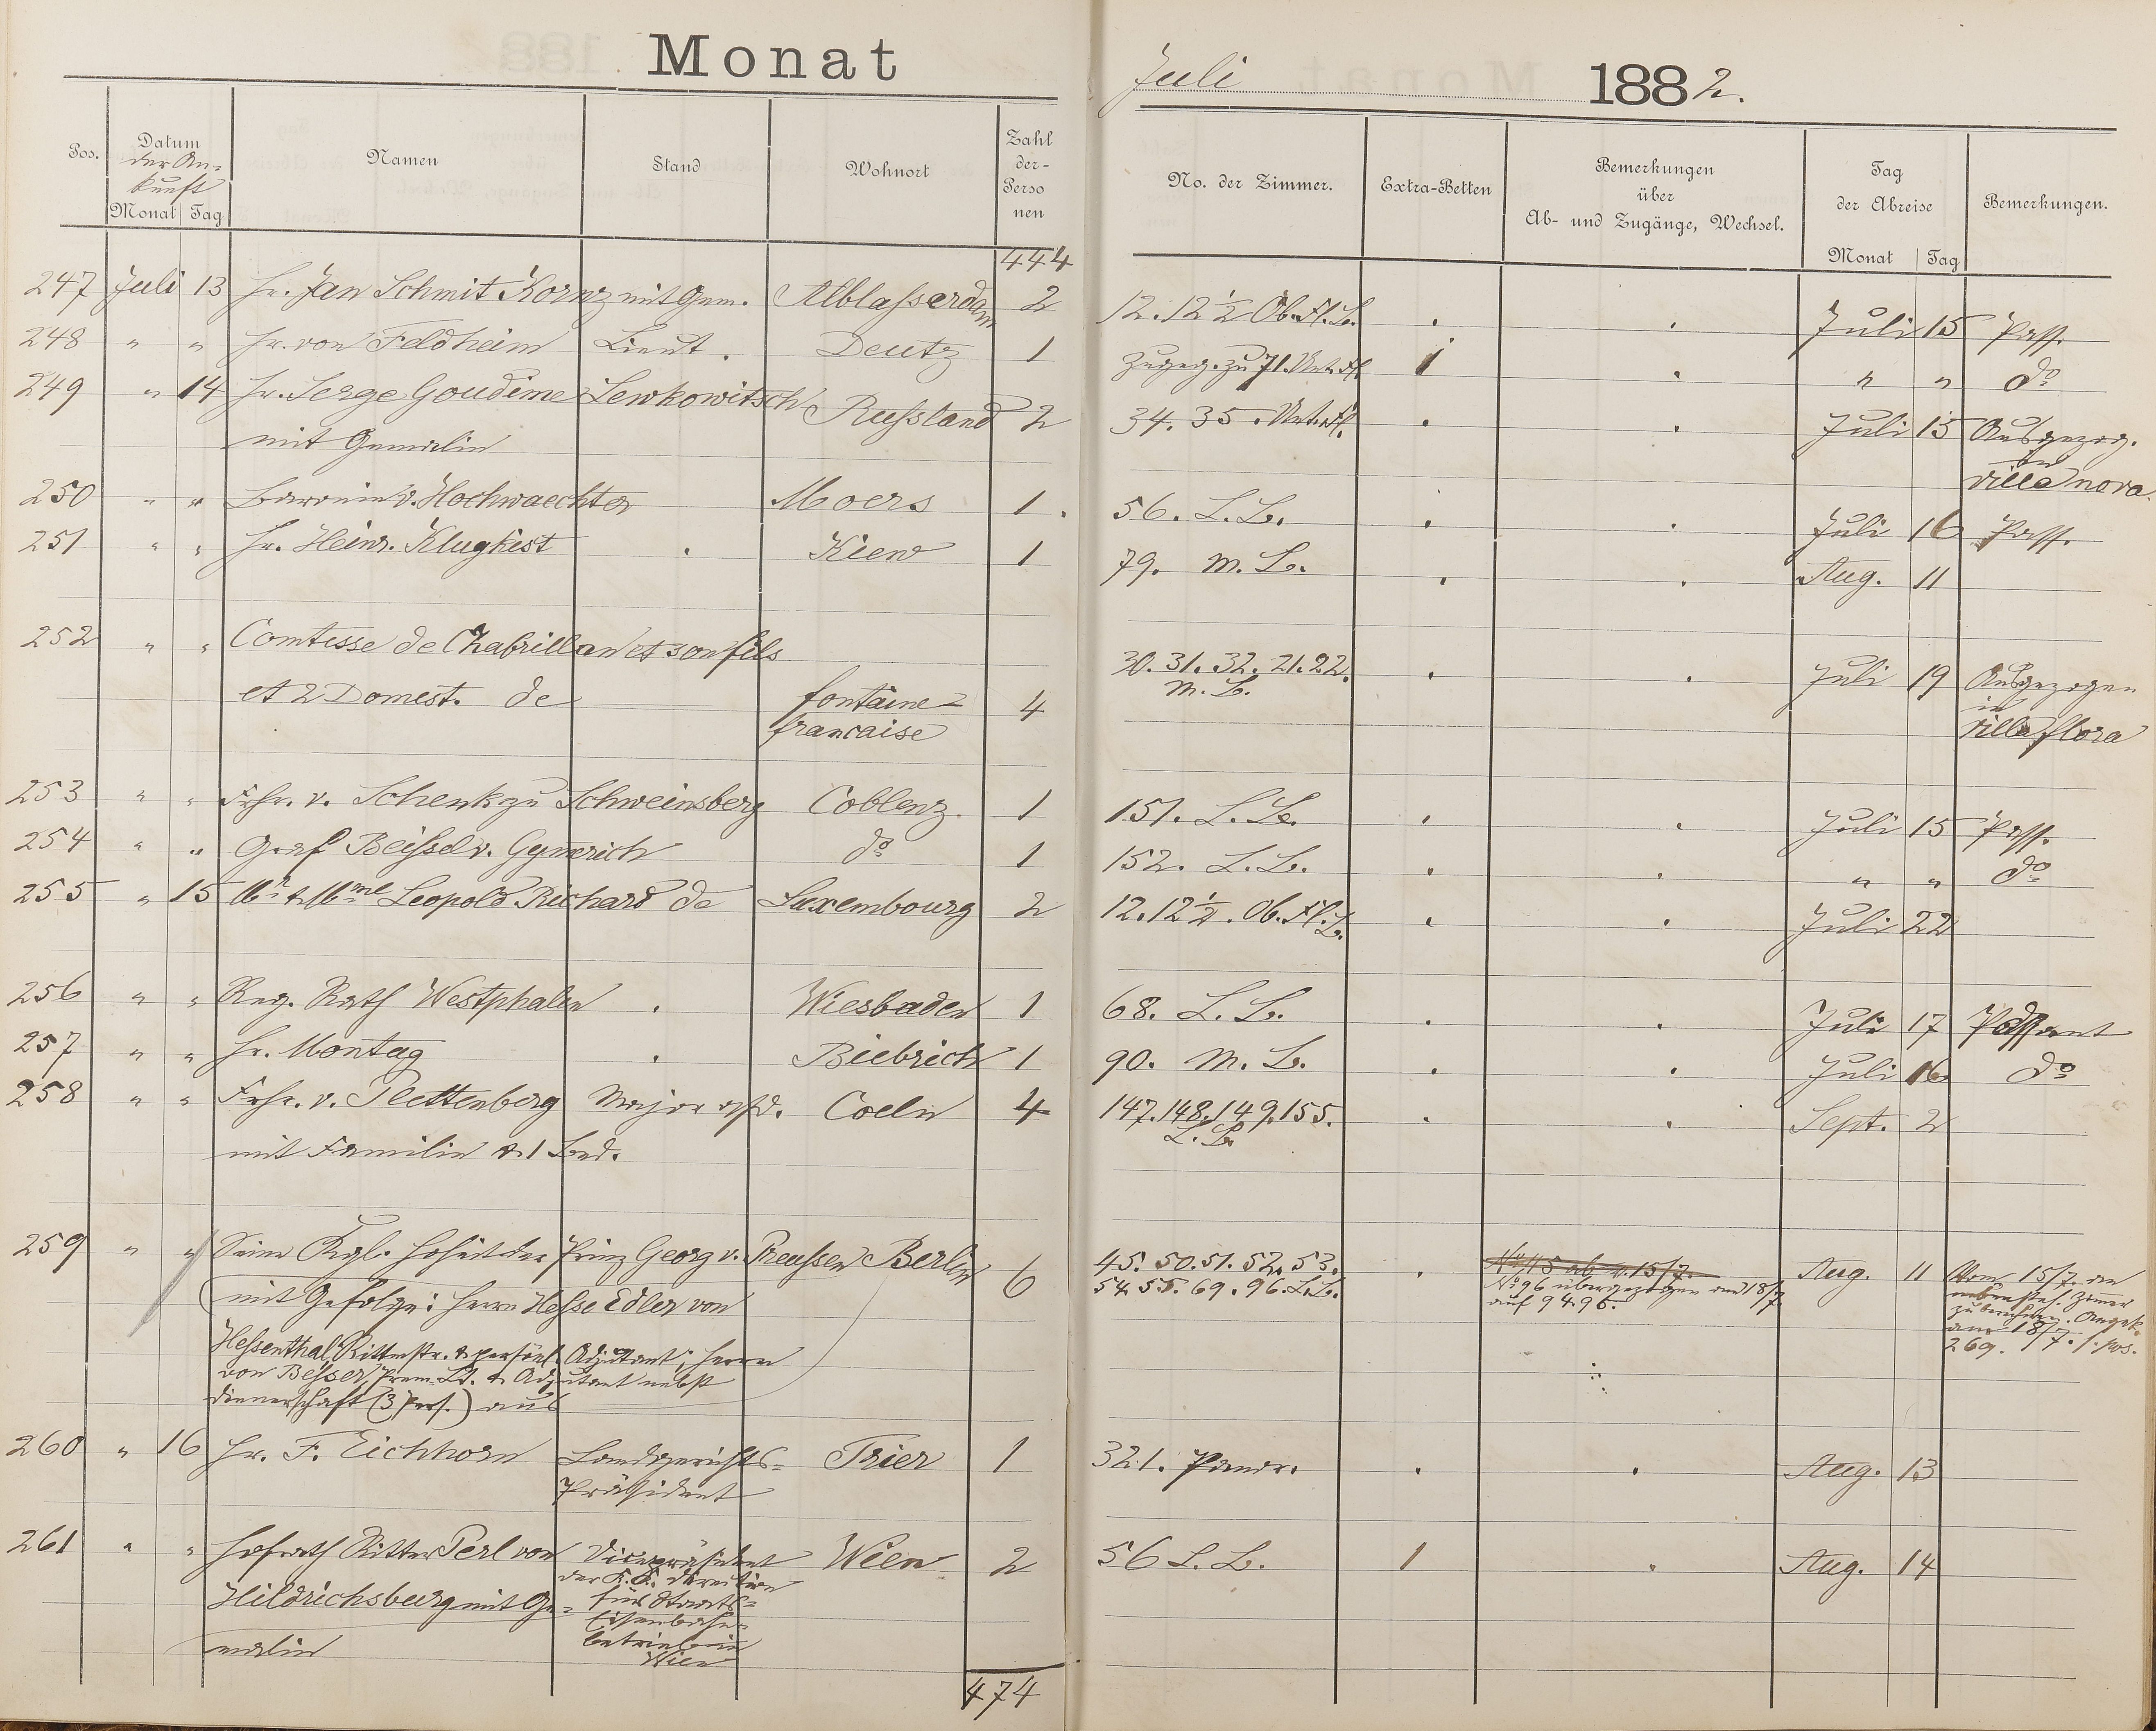 Monat
Juli 1882.
Pos. Datum der Ankunft Monat Tag Namen Stand Wohnort Zahl der Personen No. der Zimmer. Extra-Betten Bemerkungen über Ab- und Zugänge, Wechsel. Tag der Abreise Monat Tag Bemerkungen.
444
247 Juli 13 Hr. Jan Schmit Kornz mit Gem. Alblasserdam 2 12. 12 1/2 Ob. Fl. L. . . Juli 15 Pass.
248 " " Hr. von Feldheim Lieut. Deutz 1 Zugeg. zu 71. Unt. Fl. 1 . " " do
249 " 14 Hr. Serge Goudime Lewkowitsch Russland 2 34. 35. Unt. Fl. . . Juli 15 Ausgezog.
mit Gemalin in
villa nova.
250 " " Baronin v. Hochwaechter Moers 1. 56. L. L. . . Juli 16 Pass.
251 " " Hr. Heinr. Klugkist . Kiew 1 79. M. L. . . Aug. 11
252 " " Comtesse de Chabrillan et son fils 30. 31. 32. 21. 22. . . Juli 19 Ausgezogen
et 2 Domest. de fontaine- 4 M. L. in
francaise villa flora
253 " " Frhr. v. Schenk zu Schweinsberg Coblenz. 1 151. L. L. . . Juli 15 Pass.
254 " " Graf Beissel v. Gymnich do 1 152. L. L. . . " " do
255 " 15 Mr & Mme Leopold Richard de Luxembourg 2 12. 12 1/2. Ob. Fl. L. . . Juli 22
256 " " Reg. Rath Westphalen . Wiesbaden 1 68. L. L. . . Juli 17 Passant
257 " " Hr. Montag . Biebrich 1 90. M. L. . . Juli 16 do
258 " " Frhr. v. Plettenberg Major a/D. Coeln 4 147. 148. 149. 155. . . Sept. 2
mit Familie & 1 Bed. L. L.
259 " " Seine Kgl. Hoheit der Prinz Georg v. Preussen Berlin 6 45. 50. 51. 52. 53. . No 45 ab v. 15/7. Aug. 11 Vom 15/7. an
mit Gefolge: Herrn Hesse Edler von 54. 55. 69. 96. L. L. No 96 übergezogen am 18/7 Zimmer
auf 94.95. zu berechnen. Angek.
Hessenthal, Rittmstr. & persönl. Adjutant; Herrn am 18/7. s. Pos.
von Besser, Prem. Lt. & Adjutant nebst 269.
Dienerschaft (3 Pers.) aus
260 " 16 Hr. F. Eichhorn Landgerichts- Trier 1 321. Panor. . . Aug. 13
Präsident
261 " " Hofrath Ritter Perl von Vicepräsident Wien 2 56 L. L. 1 " Aug. 14
der K. K. Direction
Hildrichsburg mit Ge- für Staats-
Eisenbahn-
malin betrieb in
Wien
474